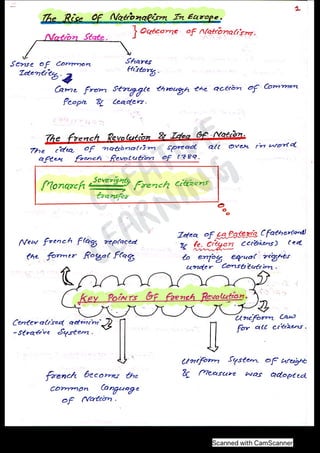 1
The Rise OF Nationalism In Europe.
Nation State.
} Outcome of Nationalism.
Sense of Common
Identity.
Shares
History.
Came from Struggle through the action of Common
People & Leaders.
The French Revolution & Idea OF Nation.
The idea of nationalism spread all over in world
after French Revolution of 1789.
Monarch Sovereignty transfer French Citizens
CREATIVE
LEARNING
New french flag replaced
the former Royal flag
Idea of La Patrie (fatherland)
& le Citoyen (citizens) led
to enjoy equal rights
under Constitution.
KEY POINTS OF French Revolution.
Centeralised admini
-strative System.
Uniform Law
For all citizens.
french becomes the
common language
of Nation.
Uniform System of weight
& Measure was adopted.
Scanned with CamScanner